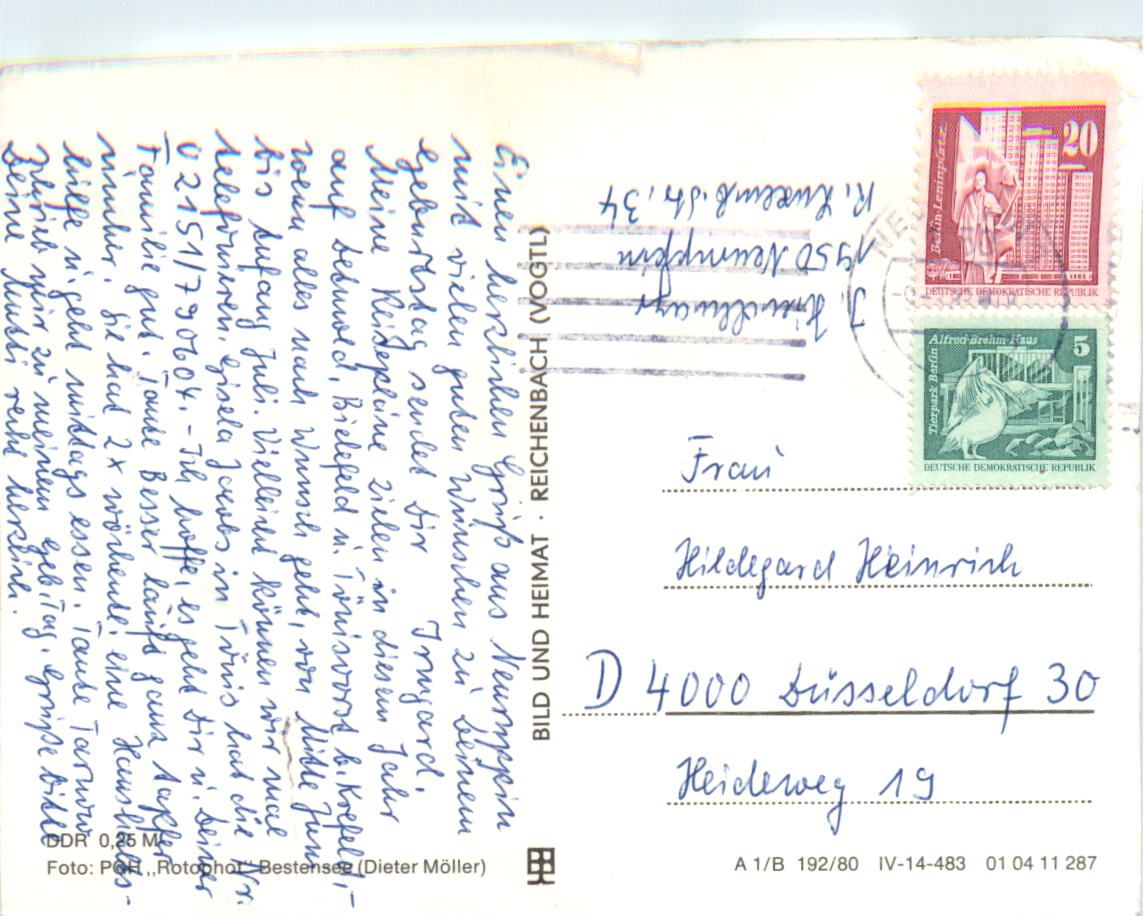 Einen herzlichen Gruß aus Neuruppin
mit vielen guten Wünschen zu Deinem
Geburtstag sendet Dir Irmgard.
Meine Reisepläne zielen in diesem Jahr
auf Detmold, Bielefeld u. Tönisvorst b. Krefeld,
wenn alles nach Wunsch geht, von Mitte Juni
bis Anfang Juli. Vielleicht können wir mal
telefonieren. Gisela Jacobs in Tönis hat die Nr.
02151/790604. – Ich hoffe, es geht Dir u. Deiner
Familie gut. Tante Besser läuft ganz tapfer
umher. Sie hat 2x wöchentl. eine Haushalts-
hilfe u. geht mittags essen. Tante
schrieb mir zu meinem Geb.Tag. Grüße bitte
Deine Mutti recht herzlich.
BILD UND HEIMAT · REICHENBACH (VOGTL)
J.
1950 Neuruppin
R. Luxemb. Str. 34
20
Berlin-Leninplatz
DEUTSCHE DEMOKRATISCHE REPUBLIK
5
Alfred-Brehm-Haus
Tierpark Berlin
DEUTSCHE DEMOKRATISCHE REPUBLIK
Frau
Hildegard Heinrich
D 4000 Düsseldorf 30
Heideweg 19
DDR 0,25 M
Foto: PGH „Rotophot" Bestensee (Dieter Möller)
A 1/B 192/80 IV-14-483 01 04 11 287